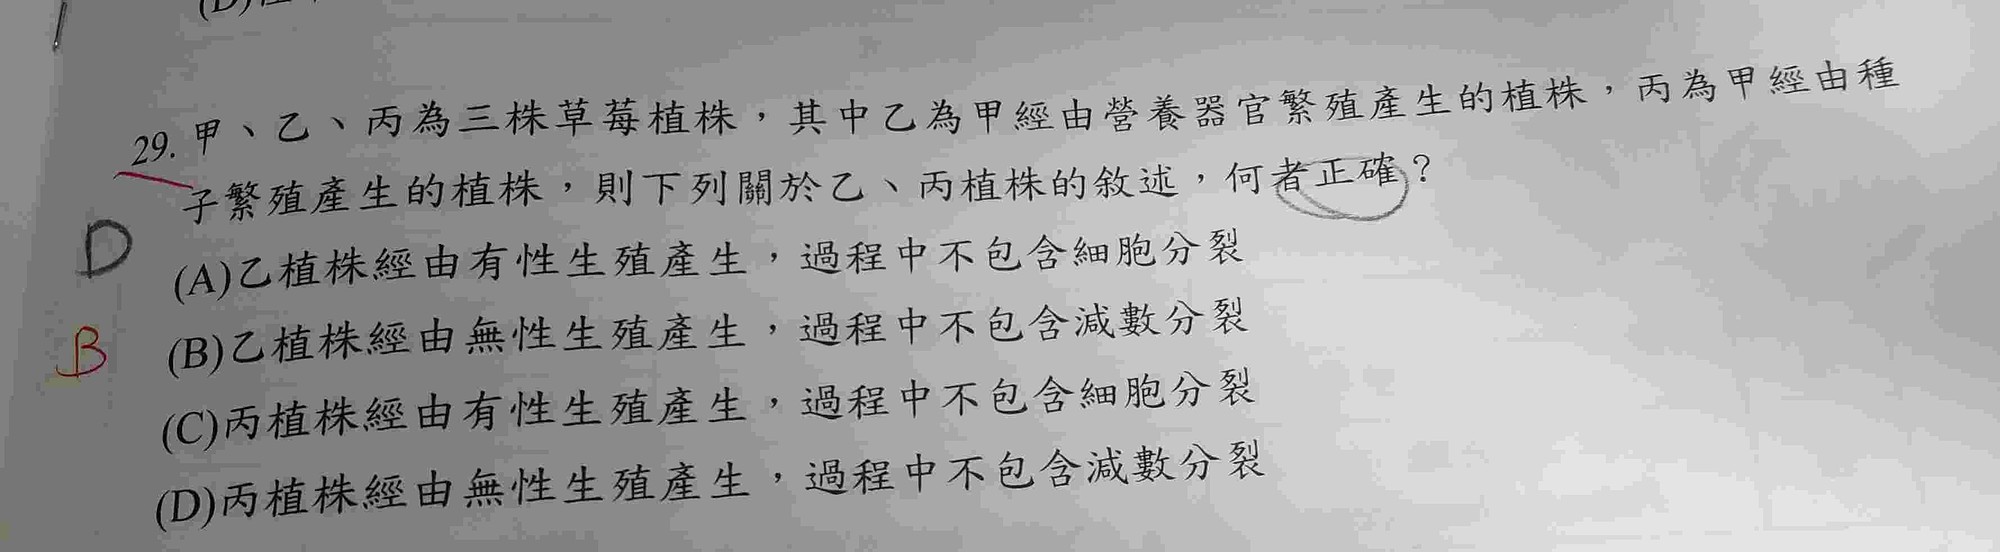 29. 甲、乙、丙為三株草莓植株，其中乙為甲經由營養器官繁殖產生的植株，丙為甲經由種
子繁殖產生的植株，則下列關於乙、丙植株的敘述，何者正確？
D
(A)乙植株經由有性生殖產生，過程中不包含細胞分裂
B
(B)乙植株經由無性生殖產生，過程中不包含減數分裂
(C)丙植株經由有性生殖產生，過程中不包含細胞分裂
(D)丙植株經由無性生殖產生，過程中不包含減數分裂